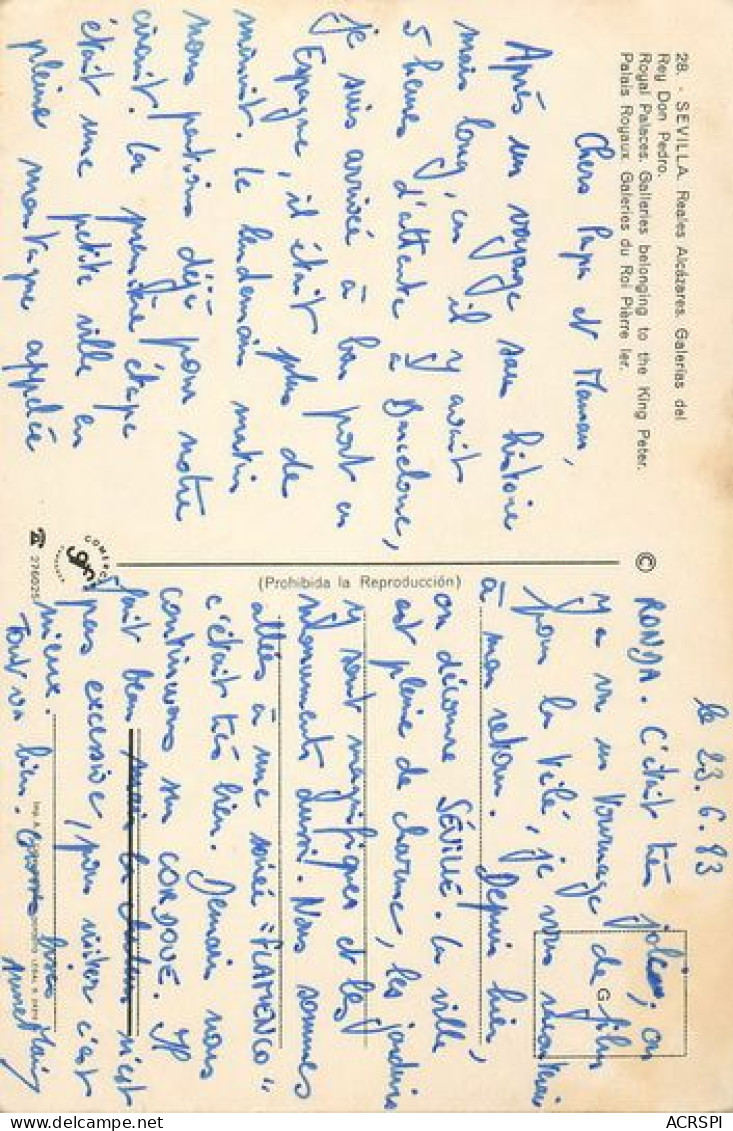 28. - SEVILLA. Reales Alcázares. Galerías del
Rey Don Pedro.
Royal Palaces. Galleries belonging to the King Peter.
Palais Royaux. Galeries du Roi Pièrre Ier.
Chers Papa et Maman,
Après un voyage sans histoire
mais long, car il y avait
5 heures d'attente à Barcelone,
je suis arrivée à bon port en
Espagne, il était plus de
minuit. Le lendemain matin
nous partions déjà pour notre
circuit. La première étape
était une petite ville en
pleine montagne appelée
©
(Prohibida la Reproducción)
COMERCIAL
276025
le 23.6.83
RONDA. C'était très joli, on
y a vu un tournage de film
pour la télé, je vous raconterai
à mon retour. Depuis hier,
on découvre SÉVILLE. La ville
est pleine de charme, les jardins
y sont magnifiques et les
monuments aussi. Nous sommes
allés à une soirée "FLAMENCO"
c'était très bien. Demain nous
continuons sur CORDOUE. Il
fait beau mais la chaleur n'est
pas excessive, pour visiter c'est
mieux.
Tout va bien. Grosses bises
G
ACRSPI